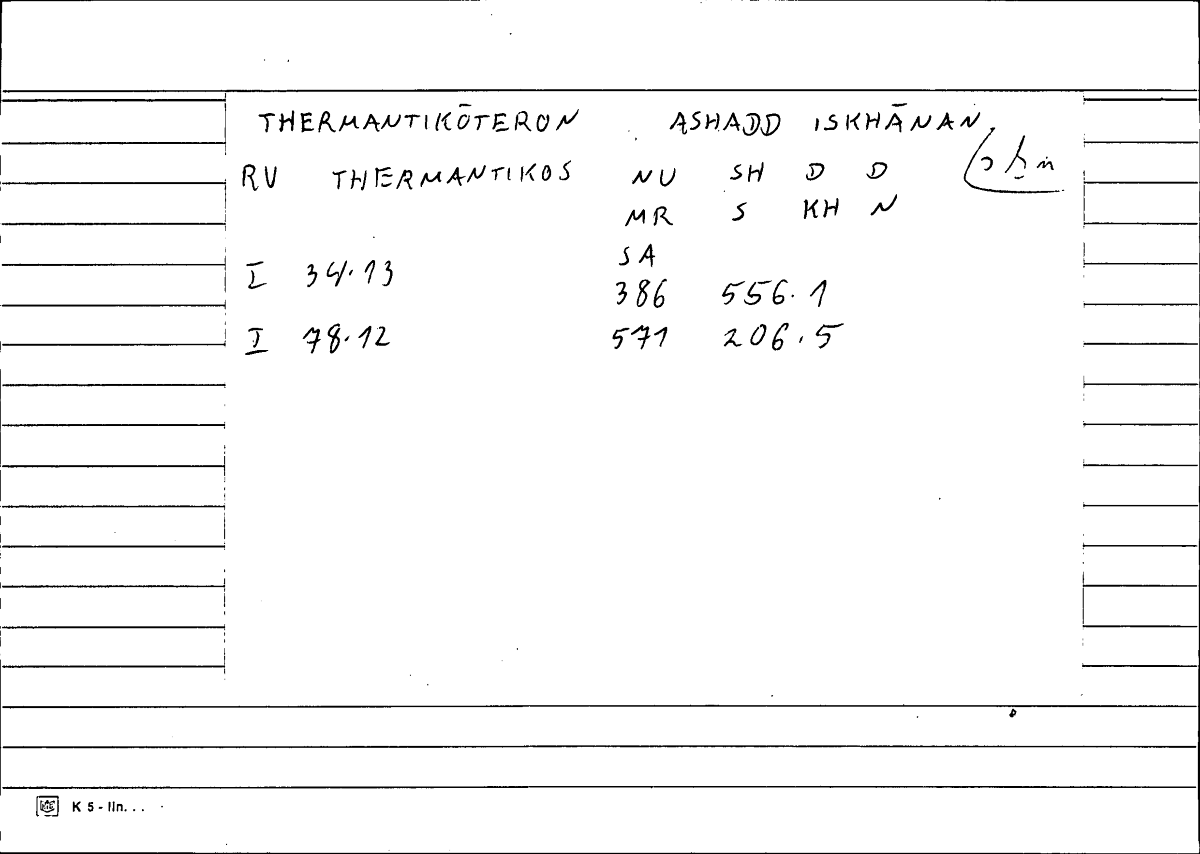 THERMANTIKŌTERON ASHADD ISKHĀNAN
RV THERMANTIKOS NU SH D D
MR S KH N
SA
I 34.13
386 556.1
I 78.12 571 206.5
K 5 - lin. . .